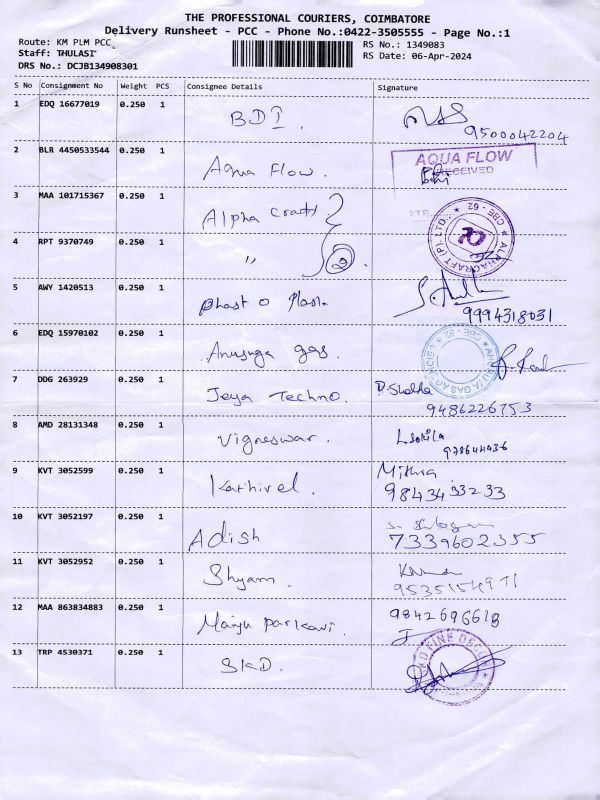 THE PROFESSIONAL COURIERS, COIMBATORE
Delivery Runsheet - PCC - Phone No.:0422-3505555 - Page No.:1
Route: KM PLM PCC,
RS No.: 1349083
Staff: THULASI
RS Date: 06-Apr-2024
DRS No.: DCJB134908301
S No Consignment No Weight PCS Consignee Details Signature
1 EDQ 16677019 0.250 1 BDI.
9500042204
2 BLR 4450533544 0.250 1 Aqua Flow.
AQUA FLOW
RECEIVED
3 MAA 101715367 0.250 1 Alpha Craft
ALPHACRAFT (P) LTD., CBE - 62
4 RPT 9370749 0.250 1 "
2
5 AWY 1420513 0.250 1 Phast o Plasta
9994318031
6 EDQ 15970102 0.250 1 Anusuga gas.
GAS AGENCIES CBE - 62
7 DDG 263929 0.250 1 Jeya Techno.
9486226753
8 AMD 28131348 0.250 1 Vigneswar.
9 KVT 3052599 0.250 1 Kathivel.
Mithra
9843433233
10 KVT 3052197 0.250 1 Adish
7339602355
11 KVT 3052952 0.250 1 Shyam.
12 MAA 863834883 0.250 1 Manju Parkavi.
9842696618
13 TRP 4530371 0.250 1 SKD.
SKD FINE DECOR